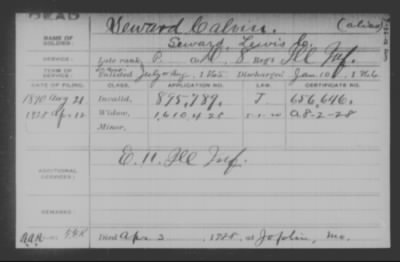 DEAD
Seward Calvin. (alias)
NAME OF SOLDIER:
Seward, Lewis C.
SERVICE: Late rank, P. Co. D, 8 Reg't Ill Inf.
TERM OF SERVICE: Enlisted July or Aug, 1865 Discharged Jan 10, 1866
DATE OF FILING. CLASS. APPLICATION NO. LAW. CERTIFICATE NO.
1890 Aug 21 Invalid, 895,789. J. 656,646.
1928 Apr. 12 Widow, 1,610,425 5-1-20 A 8-2-28
Minor,
E. 11. Ill Inf.
ADDITIONAL SERVICES:
REMARKS:
Died Apr 3 1928, at Joplin, Mo.